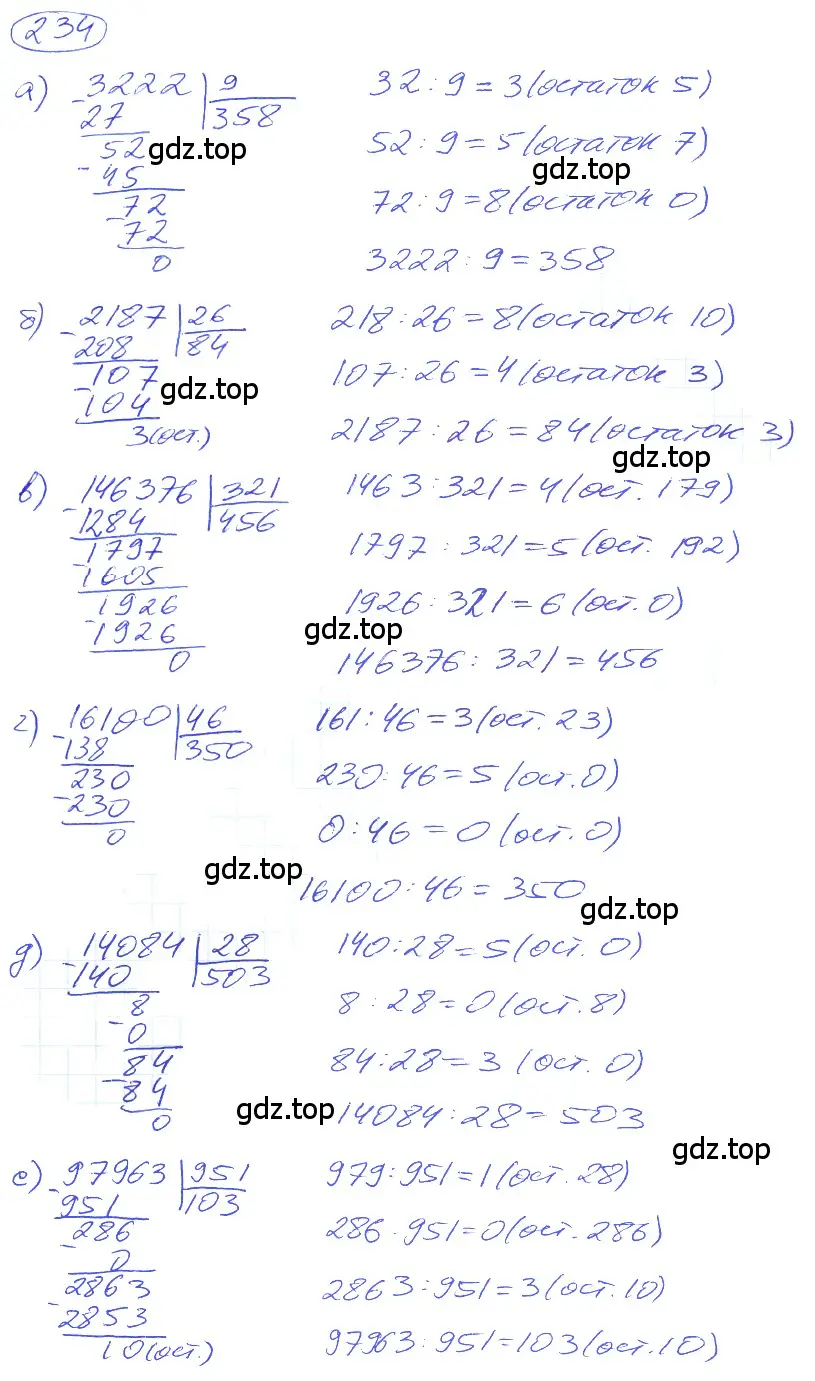 234
а) 3222 | 9 32 : 9 = 3 (остаток 5)
- 27 358
52 52 : 9 = 5 (остаток 7)
- 45
72 72 : 9 = 8 (остаток 0)
- 72
0 3222 : 9 = 358
б) 2187 | 26 218 : 26 = 8 (остаток 10)
- 208 84
107 107 : 26 = 4 (остаток 3)
- 104
3 (ост.) 2187 : 26 = 84 (остаток 3)
в) 146376 | 321 1463 : 321 = 4 (ост. 179)
- 1284 456
1797 1797 : 321 = 5 (ост. 192)
- 1605
1926 1926 : 321 = 6 (ост. 0)
- 1926
0 146376 : 321 = 456
г) 16100 | 46 161 : 46 = 3 (ост. 23)
- 138 350
230 230 : 46 = 5 (ост. 0)
- 230
0 0 : 46 = 0 (ост. 0)
16100 : 46 = 350
д) 14084 | 28 140 : 28 = 5 (ост. 0)
- 140 503
8 8 : 28 = 0 (ост. 8)
- 0
84 84 : 28 = 3 (ост. 0)
- 84
0 14084 : 28 = 503
е) 97963 | 951 979 : 951 = 1 (ост. 28)
- 951 103
286 286 : 951 = 0 (ост. 286)
- 0
2863 2863 : 951 = 3 (ост. 10)
- 2853
10 (ост.) 97963 : 951 = 103 (ост. 10)
gdz.top
gdz.top
gdz.top
gdz.top
gdz.top
gdz.top
gdz.top
gdz.top
gdz.top